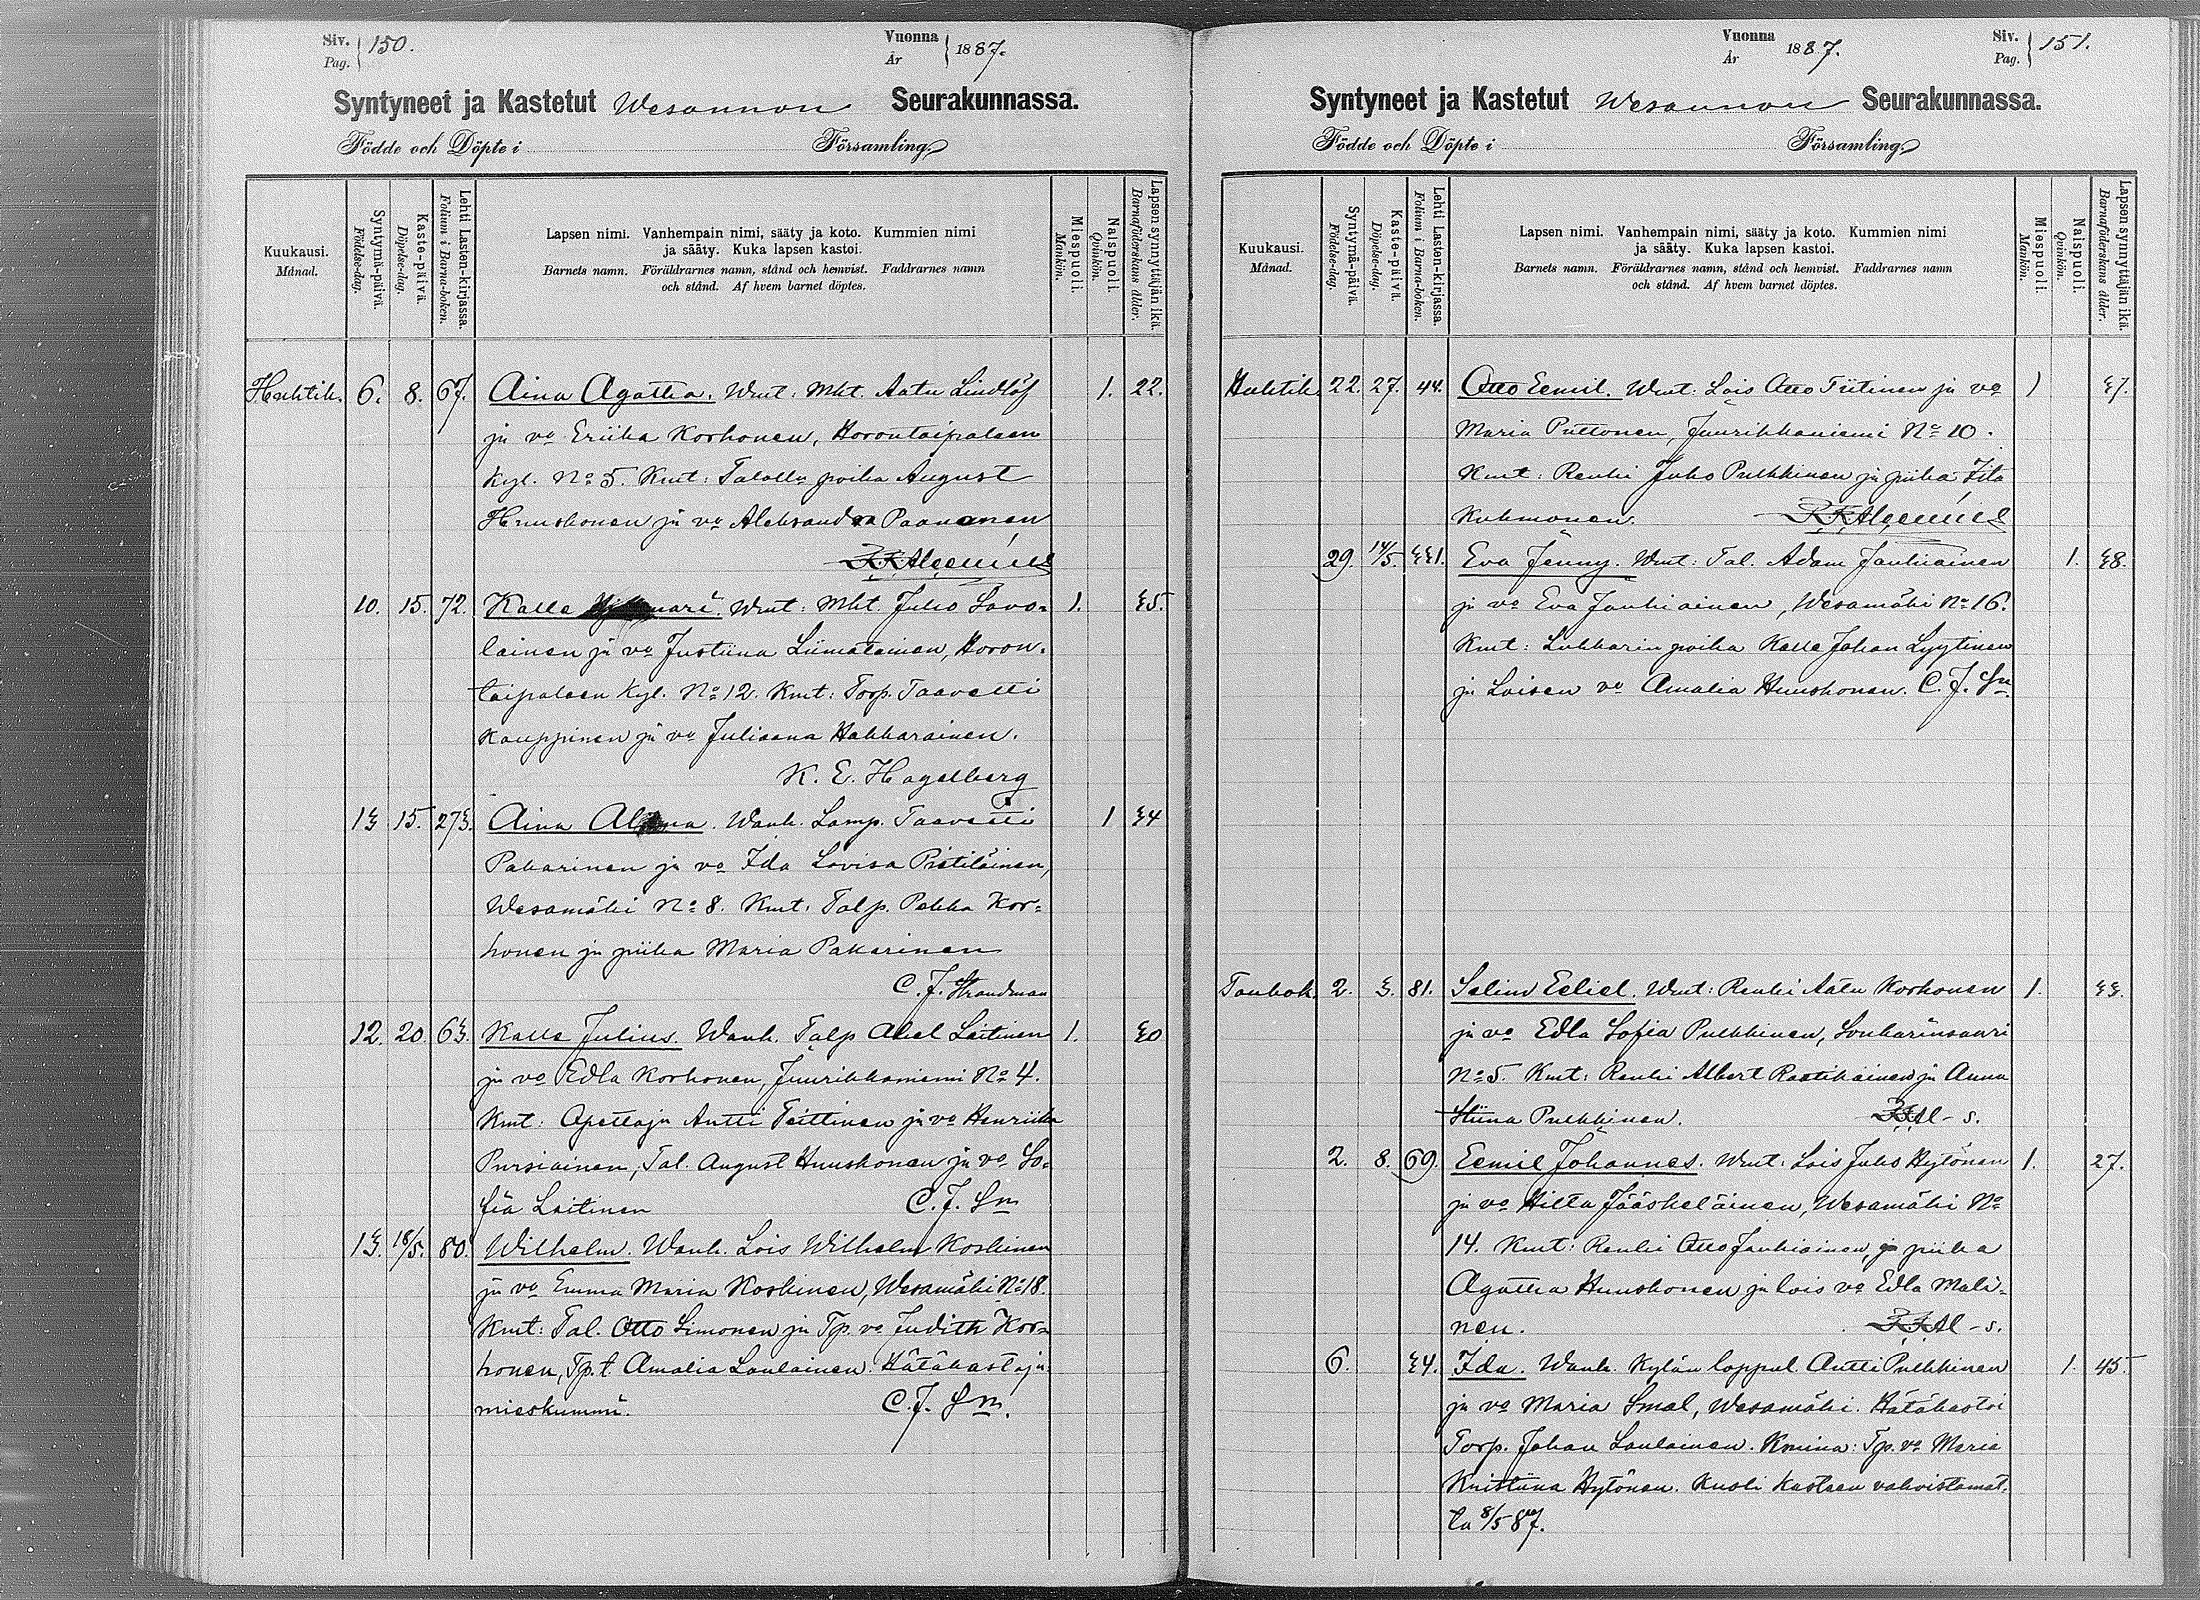 Siv. Pag. 150.
Vuonna År 1887.
Syntyneet ja Kastetut Wesannon Seurakunnassa.
Födde och Döpte i Församling.
Kuukausi. Månad.
Syntymä-päivä. Födelse-dag.
Kaste-päivä. Döpelse-dag.
Lehti Lasten-kirjassa. Folium i Barna-boken.
Lapsen nimi. Vanhempain nimi, sääty ja koto. Kummien nimi
ja sääty. Kuka lapsen kastoi.
Barnets namn. Föräldrarnes namn, stånd och hemvist. Faddrarnes namn
och stånd. Af hvem barnet döptes.
Miespuoli. Mankön.
Naispuoli. Qvinkön.
Lapsen synnyttäjän ikä. Barnaföderskans ålder.
Huhtik. 6. 8. 67. Aina Agatha. Wmt: Mkt. Aatu Lindlöf 1. 22.
ja vo Eriika Korhonen, Horontaipaleen
Kyl. No 5. Kmt: Talolln poika August
Huuskonen ja vo Aleksandra Paananen
10. 15. 72. Kalle Wmt: Mkt. Juho Savo= 1. 35.
lainen ja vo Justiina Liimatainen, Horon=
taipaleen Kyl. No 12. Kmt: Torp. Taavetti
Kauppinen ja vo Juliaana Hakkarainen.
K. E. Hagelberg
13 15. 273. Aina Wanh. Lamp. Taavetti 1 34
Pakarinen ja vo Ida Lovisa Pietiläinen,
Wesamäki No 8. Kmt: Talp. Pekka Kor=
honen ja piika Maria Pakarinen
C. J. Strandman
12. 20. 63. Kalle Julius. Wanh. Talp Abel Laitinen 1. 30
ja vo Edla Korhonen, Juurikkaniemi No 4.
Kmt: Opettaja Antti Teittinen ja vo Henriikka
Pursiainen, Tal. August Huuskonen ja vo So=
fia Laitinen C. J. Sm
13. 18/5. 80. Wilhelm. Wanh. Lois Wilhelm Koskinen
ja vo Emma Maria Koskinen, Wesamäki No 18.
Kmt: Tal. Otto Simonen ja Tp. vo Judith Kor=
honen, Tp. t. Amalia Laulainen. Hätäkastaja
mieskummi. C. J. Sm.
Vuonna År 1887.
Siv. Pag. 151.
Syntyneet ja Kastetut Wesannon Seurakunnassa.
Födde och Döpte i Församling.
Kuukausi. Månad.
Syntymä-päivä. Födelse-dag.
Kaste-päivä. Döpelse-dag.
Lehti Lasten-kirjassa. Folium i Barna-boken.
Lapsen nimi. Vanhempain nimi, sääty ja koto. Kummien nimi
ja sääty. Kuka lapsen kastoi.
Barnets namn. Föräldrarnes namn, stånd och hemvist. Faddrarnes namn
och stånd. Af hvem barnet döptes.
Miespuoli. Mankön.
Naispuoli. Qvinkön.
Lapsen synnyttäjän ikä. Barnaföderskans ålder.
Huhtik. 22. 27. 44. Otto Eemil. Wmt. Lois Otto Tiitinen ja vo 1 37.
Maria Puttonen, Juurikkaniemi No 10.
Kmt: Renki Juho Pulkkinen ja piika Iita
Kuhmonen.
29. 14/5. 331. Eva Jenny. Wmt: Tal. Adam Jauhiainen 1. 38.
ja vo Eva Jauhiainen, Wesamäki No 16.
Kmt: Lukkarin poika Kalle Johan Lyytinen
ja Loisen vo Amalia Huuskonen. C. J. Sm.
Toukok. 2. 3. 81. Selim Eeliel. Wmt: Renki Aatu Korhonen 1. 33.
ja vo Edla Sofia Pulkkinen, Sonkarinsaari
No 5. Kmt: Renki Albert Raatikainen ja Anna
Stiina Pulkkinen.
2. 8. 69. Eemil Johannes. Wmt: Lois Juho Hytönen 1. 27.
ja vo Hilta Jääskeläinen, Wesamäki No
14. Kmt: Renki Otto Jauhiainen, ja piika
Agatha Huuskonen ja lois vo Edla Mali=
nen.
6. 34. Ida. Wanh. Kylän loppul. Antti Pulkkinen 1. 45.
ja vo Maria Smal, Wesamäki. Hätäkastoi
Torp. Johan Laulainen. Kmina: Tp. vo Maria
Kristiina Hytönen. Kuoli kasteen vahvistamat,
ta 8/5 87.